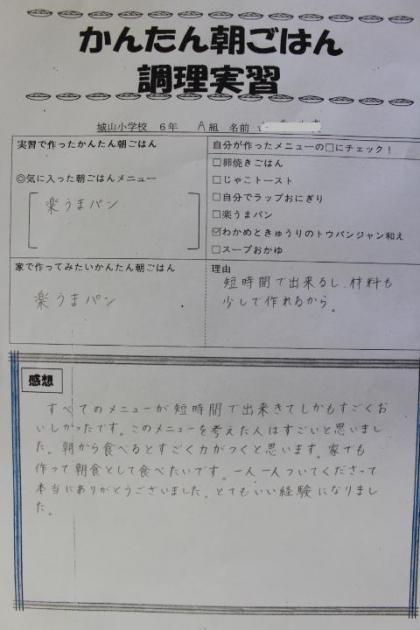 かんたん朝ごはん
調理実習
城山小学校 6年 A組 名前
実習で作ったかんたん朝ごはん
◎気に入った朝ごはんメニュー
楽うまパン
自分が作ったメニューの□にチェック！
□卵焼きごはん
□じゃこトースト
□自分でラップおにぎり
□楽うまパン
☑わかめときゅうりのトウバンジャン和え
□スープおかゆ
家で作ってみたいかんたん朝ごはん
楽うまパン
理由
短時間で出来るし、材料も
少しで作れるから。
感想
すべてのメニューが短時間で出来きてしかもすごくお
いしかったです。このメニューを考えた人はすごいと思いまし
た。朝から食べるとすごく力がつくと思います。家でも
作って朝食として食べたいです。一人一人ついてくださって
本当にありがとうございました。とてもいい経験になりまし
た。